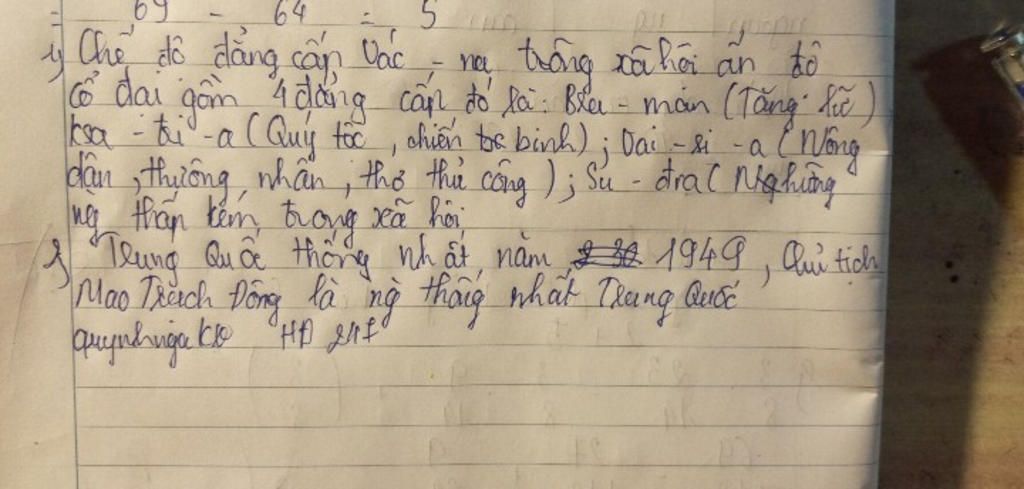 = 69 - 64 = 5
1) Chế độ đẳng cấp Vác - na trong xã hội ấn độ
cổ đại gồm 4 đẳng cấp đó là: Bra - man (Tăng lữ)
ksa - tri - a (Quý tộc, chiến binh); Vai - si - a (Nông
dân, thương nhân, thợ thủ công); Su - đra (Những
ng thấp kém trong xã hội
2) Trung Quốc thống nhất năm 1949, Chủ tịch
Mao Trạch Đông là ng thống nhất Trung Quốc
quynhnga HD 247